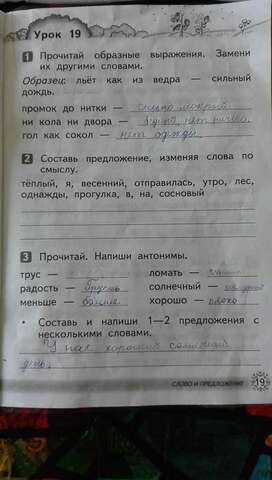 Урок 19
1 Прочитай образные выражения. Замени
их другими словами.
Образец: льёт как из ведра — сильный
дождь.
промок до нитки — сильно мокрый
ни кола ни двора — нет ничего.
гол как сокол — нет одежды
2 Составь предложение, изменяя слова по
смыслу.
тёплый, я, весенний, отправилась, утро, лес,
однажды, прогулка, в, на, сосновый
3 Прочитай. Напиши антонимы.
трус — ломать —
радость — грусть солнечный —
меньше — больше хорошо — плохо
• Составь и напиши 1—2 предложения с
несколькими словами.
У нас хороший
день.
СЛОВО И ПРЕДЛОЖЕНИЕ 19